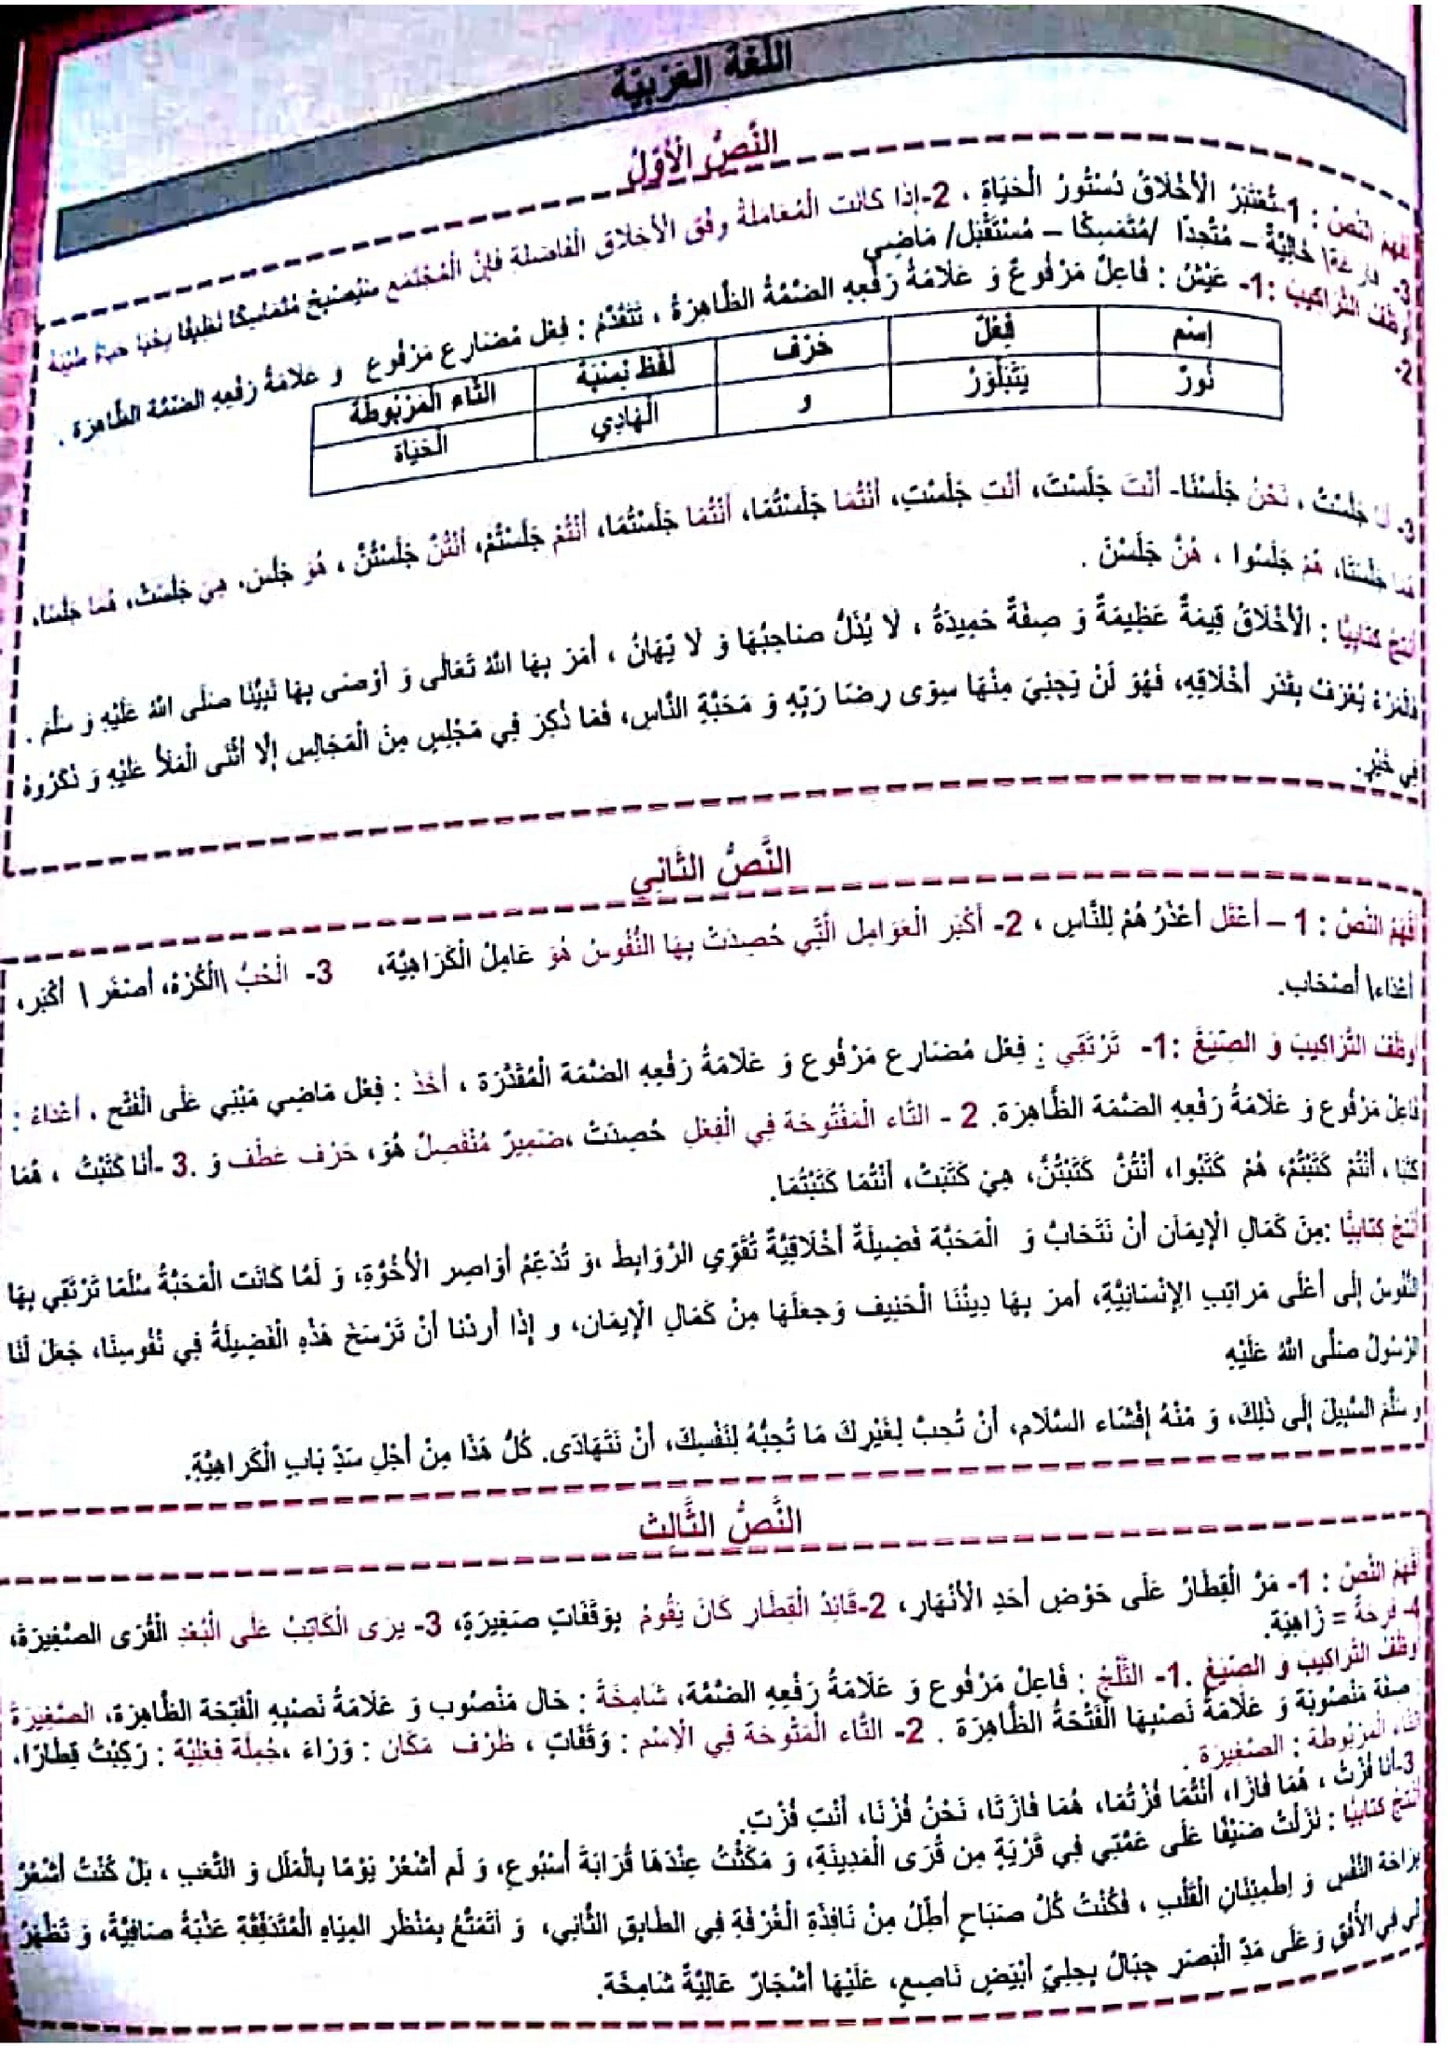 اللُّغَةُ العَرَبِيَّة
النَّصُّ الأَوَّلُ
أَفْهَمُ النَّصَّ : 1-تُعْتَبَرُ الْأَخْلَاقُ دُسْتُورُ الْحَيَاةِ ، 2-إِذَا كَانَت الْمُعَامَلَةُ وِفْقَ الأَخْلَاقِ الْفَاضِلَةِ فَإِنَّ الْمُجْتَمَعَ سَيُصْبِحُ مُتَمَسِّكًا نَظِيفًا يَحْيَا حَيَاةً طَيِّبَةً
3- فارغة\ خَالِيَةٌ – مُتَّحِدًا /مُتَمَسِكًا – مُسْتَقْبَل/ مَاضِي
أوَظِّفُ التَّرَاكِيبَ :1- عَيْشُ : فَاعِلٌ مَرْفُوعٌ وَ عَلَامَةُ رَفْعِهِ الضَمَّةُ الظَّاهِرَةُ ، تَتَقَدَّمُ : فِعْل مُضَارِع مَرْفُوع وَ عَلَامَةُ رَفْعِهِ الضَمَّة الظَّاهِرَة .
2-
إِسْم فِعْلٌ حَرْف لَفْظ نِسْبَةُ التَّاء الْمَرْبُوطَةُ
نُورٌ يَتَبَلْوَرُ وَ الْهَادِي الْحَيَاة
3- أنا جَلَسْتُ ، نَحْنُ جَلَسْنَا- أَنْتَ جَلَسْتَ، أَنْتِ جَلَسْتِ، أَنْتُمَا جَلَسْتُمَا، أَنْتُمَا جَلَسْتُمَا، أَنْتُمْ جَلَسْتُمْ، أَنْتُنَّ جَلَسْتُنَّ ، هُوَ جَلَسَ، هِيَ جَلَسَتْ، هُمَا جَلَسَا،
هُمَا جَلَسَتَا، هُمْ جَلَسُوا ، هُنَّ جَلَسْنَ .
أُنْتِجُ كِتَابِيًّا : الْأَخْلَاقُ قِيمَةٌ عَظِيمَةٌ وَ صِفَةٌ حَمِيدَةٌ ، لَا يُذَلُّ صَاحِبُهَا وَ لَا يُهَانُ ، أَمَرَ بِهَا اللهُ تَعَالَى وَ أَوْصَى بِهَا نَبِيُّنَا صَلَّى اللهُ عَلَيْهِ وَ سَلَّمَ .
فَالْمَرْءُ يُعْرَفُ بِقَدْرِ أَخْلَاقِهِ، فَهُوَ لَنْ يَجْنِيَ مِنْهَا سِوَى رِضَا رَبِّهِ وَ مَحَبَّةِ النَّاسِ، فَمَا ذُكِرَ فِي مَجْلِسٍ مِنَ الْمَجَالِسِ إِلَّا أَثْنَى الْمَلَأُ عَلَيْهِ وَ ذَكَرُوهُ
فِي خَيْرٍ.
النَّصُّ الثَّانِي
أَفْهَمُ النَّصَّ : 1 – أَعْقَل أَعْذَرُ هُمْ لِلنَّاسِ ، 2- أَكْبَر الْعَوَامِل الَّتِي حُصِدَتْ بِهَا النُّفُوسُ هُوَ عَامِلُ الْكَرَاهِيَّة، 3- الْحُبُّ \الْكُرْهُ، أَصْغَر \ أَكْبَر،
أَعْدَاء\ أَصْحَاب.
أوَظِّفُ التَّرَاكِيبَ وَ الصِّيَغَ :1- تَرْتَقِي : فِعْل مُضَارِع مَرْفُوع وَ عَلَامَةُ رَفْعِهِ الضَمَّة الْمُقَدَّرَة ، أَخَذَ : فِعْل مَاضِي مَبْنِي عَلَى الْفَتْح ، أَعْدَاءُ :
فَاعِلٌ مَرْفُوع وَ عَلَامَةُ رَفْعِهِ الضَمَّة الظَّاهِرَة. 2 - التَّاء الْمَفْتُوحَة فِي الْفِعْلِ حُصِدَتْ ،ضَمِيرٌ مُنْفَصِلٌ هُوَ، حَرْف عَطْف وَ .3 -أَنَا كَتَبْتُ ، هُمَا
كَتَبَا ، أَنْتُمْ كَتَبْتُمْ، هُمْ كَتَبُوا، أَنْتُنَّ كَتَبْتُنَّ، هِيَ كَتَبَتْ، أَنْتُمَا كَتَبْتُمَا.
أُنْتِجُ كِتَابِيًّا :مِنْ كَمَالِ الْإِيمَانِ أَنْ نَتَحَابَّ وَ الْمَحَبَّة فَضِيلَةٌ أَخْلَاقِيَّةٌ تُقَوِّي الرَّوَابِطَ ،وَ تُدَعِّمُ أَوَاصِرِ الْأُخُوَّةِ، وَ لَمَّا كَانَت الْمَحَبَّةُ سُلَّمًا تَرْتَقِي بِهَا
النُّفُوسُ إِلَى أَعْلَى مَرَاتِبِ الْإِنْسَانِيَّةِ، أَمَرَ بِهَا دِينُنَا الْحَنِيفِ وَجَعَلَهَا مِنْ كَمَالِ الْإِيمَانِ، وَ إِذَا أَرَدْنَا أَنْ تَرْسَخَ هَذِهِ الْفَضِيلَةُ فِي نُفُوسِنَا، جَعَلَ لَنَا
الرَّسُولُ صَلَّى اللهُ عَلَيْهِ
وَ سَلَّمَ السَّبِيلَ إِلَى ذَلِكَ، وَ مِنْهُ إِفْشَاء السَّلَام، أَنْ تُحِبَّ لِغَيْرِكَ مَا تُحِبُّهُ لِنَفْسِكَ، أَنْ نَتَهَادَى. كُلُّ هَذَا مِنْ أَجْلِ سَدِّ بَابِ الْكَرَاهِيَّةِ.
النَّصُّ الثَّالِث
أَفْهَمُ النَّصَّ : 1- مَرَّ الْقِطَارُ عَلَى حَوْضِ أَحَدِ الْأَنْهَارِ، 2-قَائِدُ الْقِطَارِ كَانَ يَقُومُ بِوَقَفَاتٍ صَغِيرَةٍ، 3- يَرَى الْكَاتِبُ عَلَى الْبُعْدِ الْقُرَى الصَّغِيرَةَ،
4- فَرِحَةٌ = زَاهِيَة.
أوَظِّفُ التَّرَاكِيبَ وَ الصِّيَغَ .1- الثَّلْجُ : فَاعِلٌ مَرْفُوع وَ عَلَامَةُ رَفْعِهِ الضَمَّةُ، شَامِخَةً : حَال مَنْصُوب وَ عَلَامَةُ نَصْبِهِ الْفَتْحَة الظَّاهِرَة، الصَّغِيرَةَ
: صِفَة مَنْصُوبَة وَ عَلَامَةُ نَصْبِهَا الْفَتْحَةُ الظَّاهِرَة . 2- التَّاء الْمَتُوحَة فِي الْإِسْمِ : وَقَفَاتٍ ، ظَرْف مَكَان : وَرَاءَ ،جُمْلَة فِعْلِيَّة : رَكِبْتُ قِطَارًا،
التَّاء الْمَرْبُوطَة : الصَّغِيرَة .
3-أَنَا فُزْتُ ، هُمَا فَازَا، أَنْتُمَا فُزْتُمَا، هُمَا فَازَتَا، نَحْنُ فُزْنَا، أَنْتِ فُزْتِ.
أُنْتِجُ كِتَابِيًّا : نَزَلْتُ ضَيْفًا عَلَى عَمَّتِي فِي قَرْيَةٍ مِن قُرَى الْمَدِينَةِ، وَ مَكَثْتُ عِنْدَهَا قُرَابَةَ أُسْبُوعٍ، وَ لَم أَشْعُرْ يَوْمًا بِالْمَلَل وَ التَّعَب ، بَلْ كُنْتُ أَشْعُرُ
بِرَاحَة النَّفْسِ وَ اِطْمِئْنَانِ الْقَلْبِ ، فَكُنْتُ كُلَّ صَبَاحٍ أُطِلُّ مِنْ نَافِذَةِ الْغُرْفَةِ فِي الطَّابِقِ الثَّانِي، وَ أَتَمَتَّعُ بِمَنْظَرِ الْمِيَاهِ الْمُتَدَفِّقَةِ عَذْبَةً صَافِيَّةً، وَ تَظْهَرُ
لِي فِي الْأُفُقِ وَ عَلَى مَدِّ الْبَصَرِ جِبَالٌ بِحِلِيٍّ أَبْيَضٍ نَاصِعٍ، عَلَيْهَا أَشْجَارٌ عَالِيَّةٌ شَامِخَة.